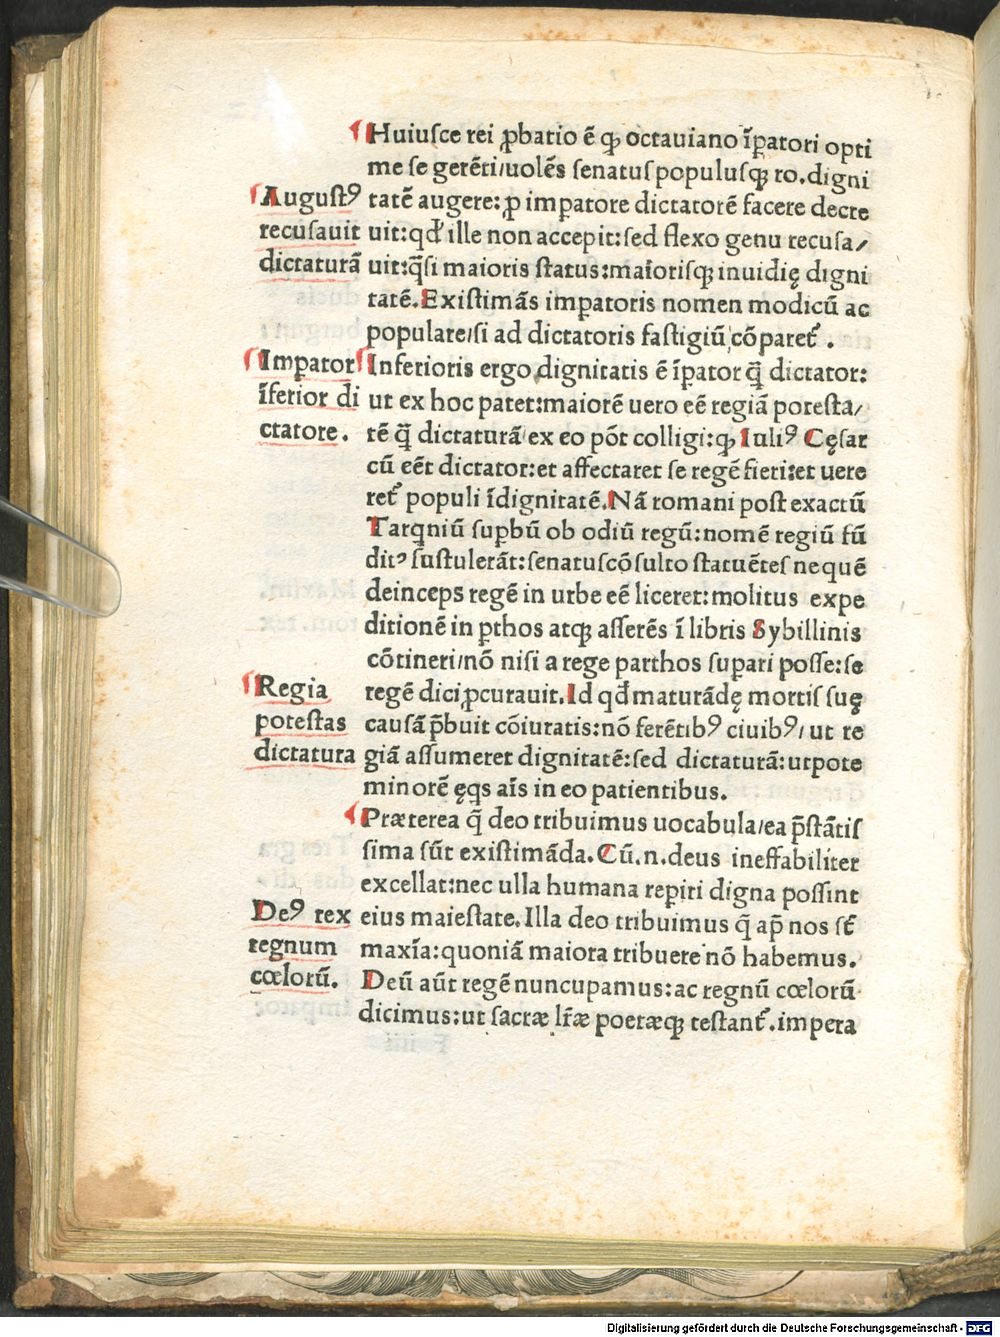 ¶Huiuſce rei ꝓbatio ē ꝙ octauiano īꝑatori opti
me ſe gerēti/uolēs ſenatuſ populuſqꝫ ro.digni
Auguſtꝰ
recuſauit
dictaturā
tatē augere: ꝓ imꝑatore dictatorē facere decre
uit:qđ ille non accepit:ſed flexo genu recuſa/
uit:q̄ſi maioris ſtatus:maioriſqꝫ inuidię digni
tatē.Exiſtimās imꝑatoris nomen modicū ac
populare/ſi ad dictatoris faſtigiū cōparet᷑.
¶Imꝑator
īferior di
ctatore.
¶Inferioris ergo dignitatis ē īꝑator q̄ dictator:
ut ex hoc patet:maiorē uero eē regiā poteſta/
tē q̄ dictaturā ex eo pōt colligi:ꝙ Iuliꝰ Cęſar
cū eēt dictator:et affectaret ſe regē fieri:et uere
ret᷑ populi īdignitatē.Nā romani poſt exactū
Tarqniū ſuꝑbū ob odiū regū:nomē regiū fū
ditꝰ ſuſtulerāt:ſenatuſcōſulto ſtatuētes ne quē
deinceps regē in urbe eē liceret:molitus expe
ditionē in ꝑthos atqꝫ aſſerēs ī libris Sybillinis
cōtineri/nō niſi a rege parthos ſuꝑari poſſe:ſe
¶Regia
poteſtas
dictatura
regē dici ꝓcurauit.Id qđ maturādę mortiſ ſuę
cauſā p̄buit cōiuratis:nō ferētibꝰ ciuibꝰ/ ut re
giā aſſumeret dignitatē:ſed dictaturā:utpote
minorē ęqs aīs in eo patientibus.
¶Præterea q̄ deo tribuimus uocabula/ea p̄ſtātiſ
ſima ſūt exiſtimāda.Cū.n.deus ineffabiliter
excellat:nec ulla humana reꝑiri digna poſſint
Deꝰ rex
regnum
cœlorū.
eius maieſtate.Illa deo tribuimus q̄ ap̄ nos ſt̄
maxīa:quoniā maiora tribuere nō habemus.
Deū aūt regē nuncupamus:ac regnū cœlorū
dicimus:ut ſacræ lr̄æ poetæqꝫ teſtant᷑.impera
Digitalisierung gefördert durch die Deutsche Forschungsgemeinschaft - DFG